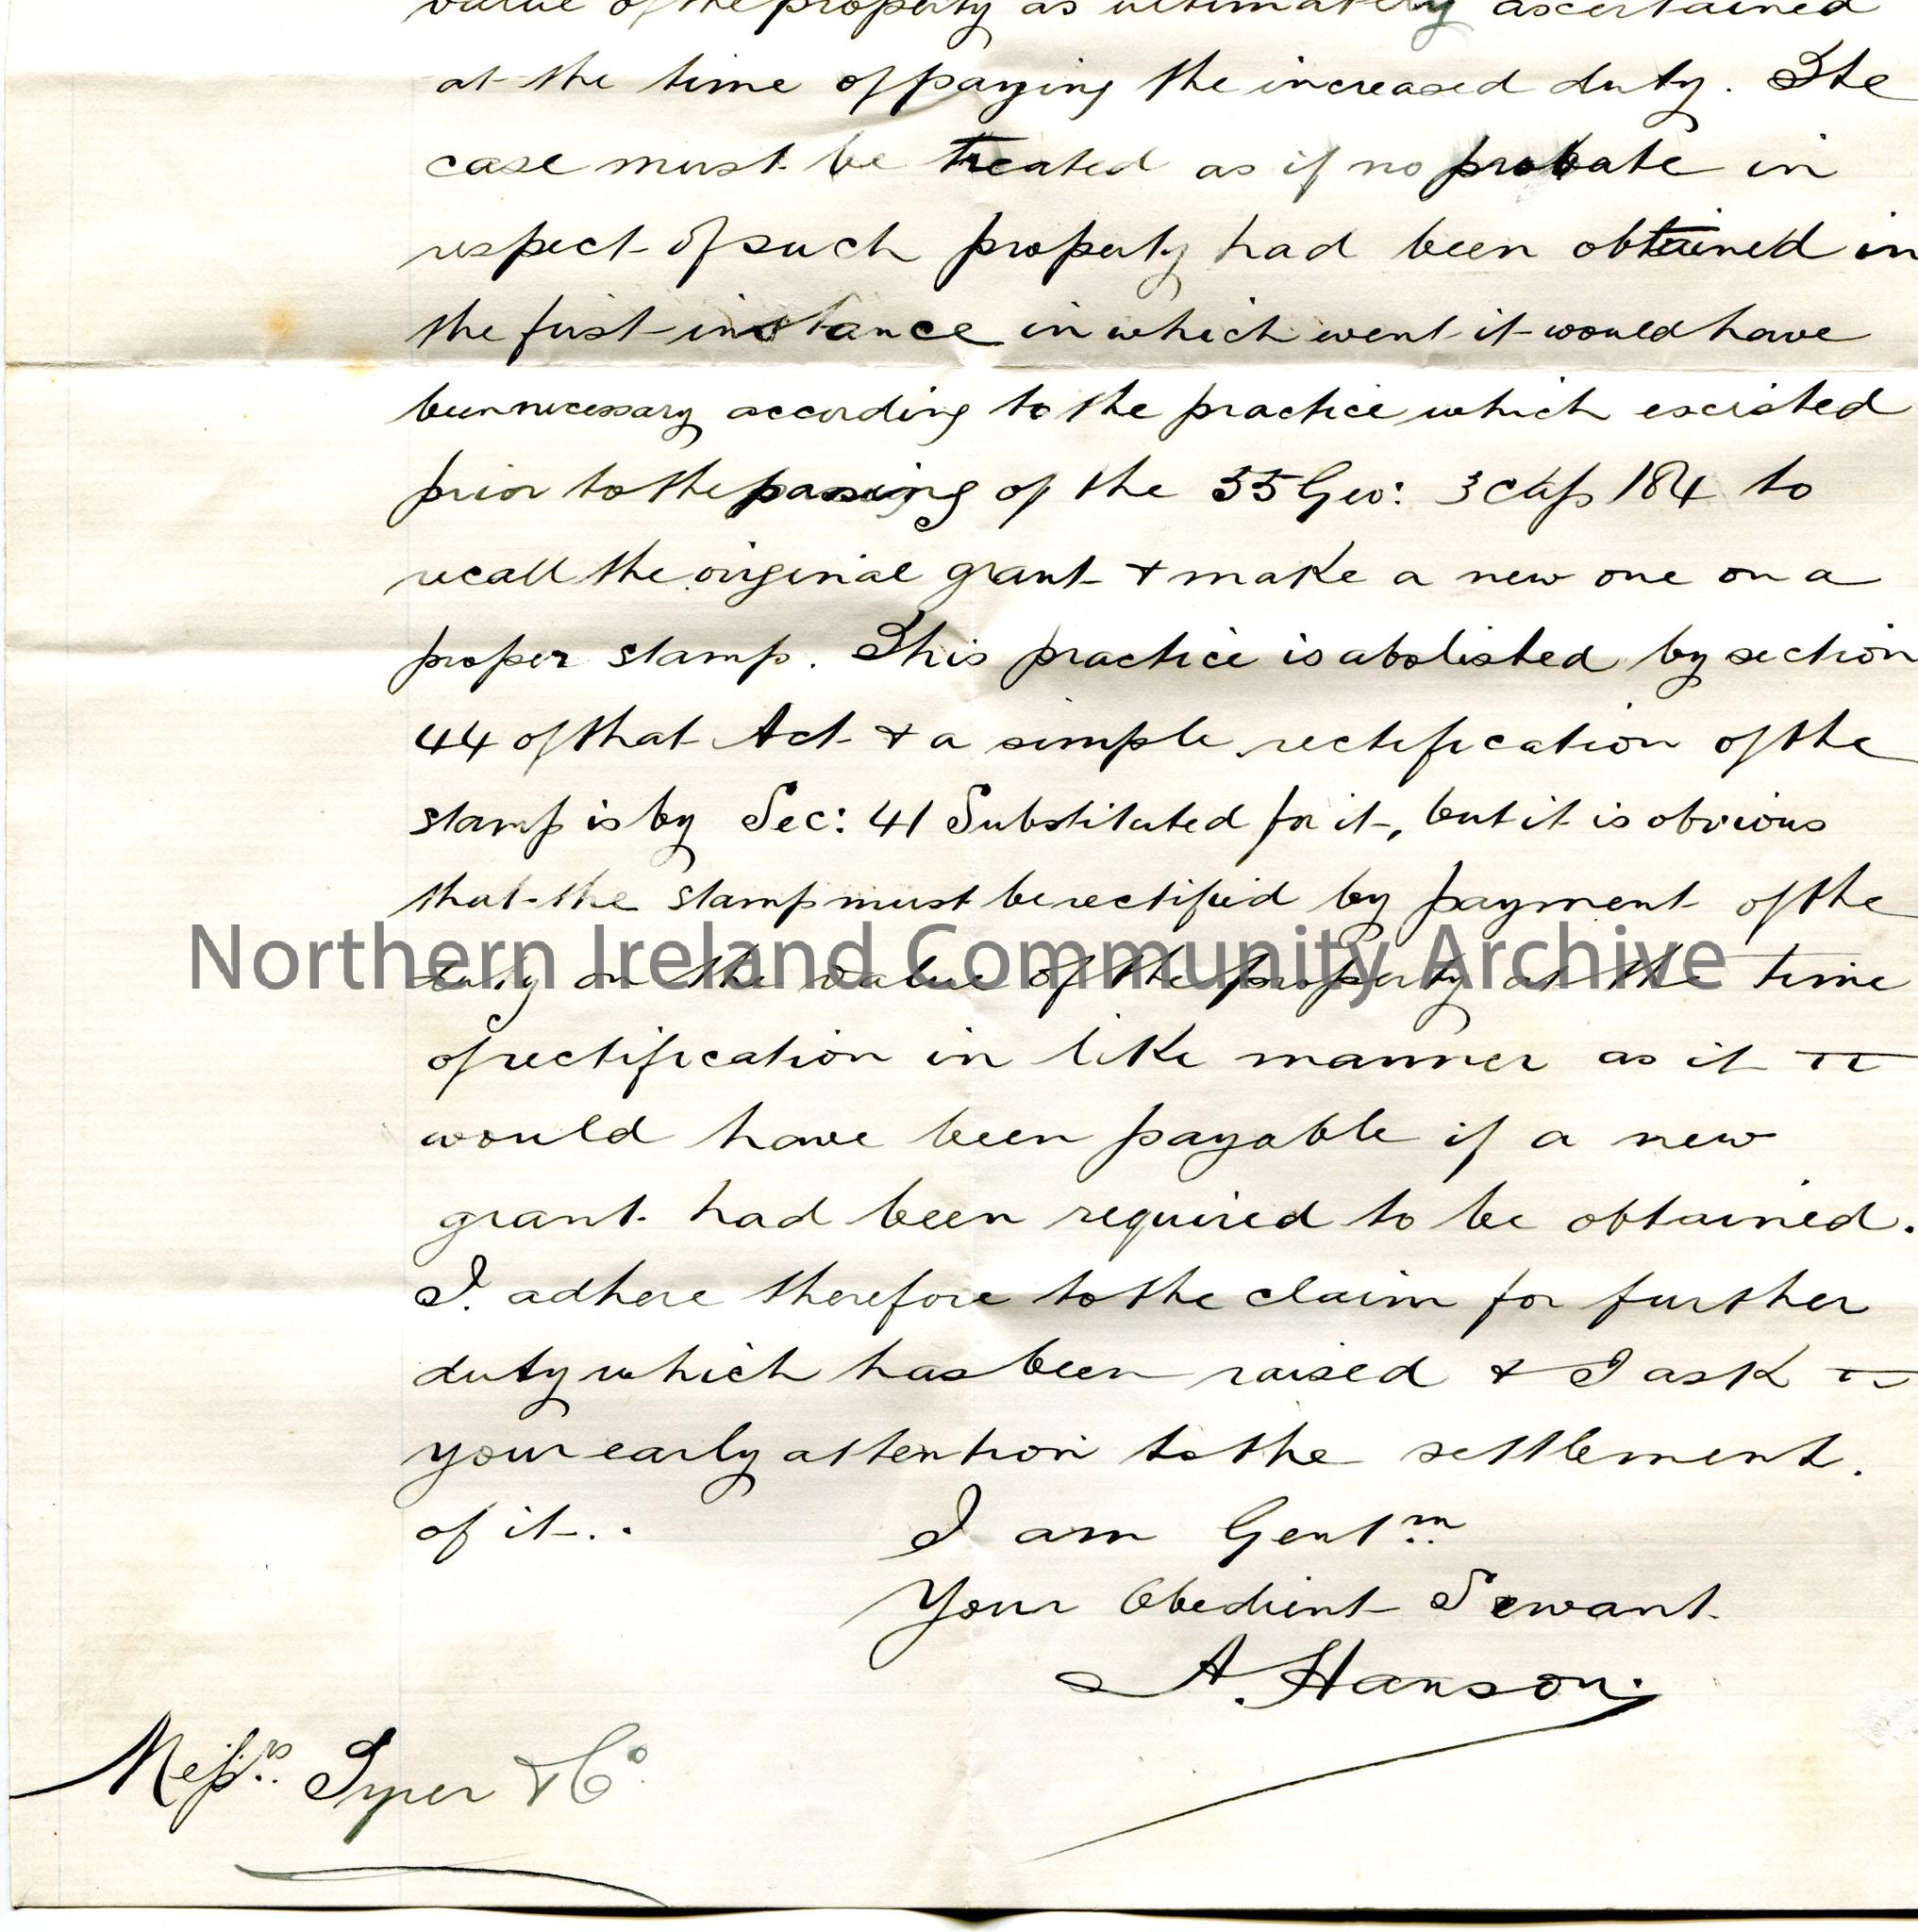 value of the property as ultimately ascertained
at the time of paying the increased duty. The
case must be treated as if no probate in
respect of such property had been obtained in
the first instance in which went it would have
been necessary according to the practice which escisted
prior to the passing of the 55 Geo: 3 Cap 184 to
recall the original grant & make a new one on a
proper stamp. This practice is abolished by section
44 of that Act & a simple rectification of the
stamp is by Sec: 41 Substituted for it, but it is obvious
that the stamp must be rectified by payment of the
Northern Ireland Community Archive
duty on the value of the property at the time
of rectification in like manner as it
would have been payable if a new
grant had been required to be obtained.
I. adhere therefore to the claim for further
duty which has been raised & I ask
your early attention to the settlement.
of it..
I am Gentm
Your Obedient Servant.
A. Hanson.
Messrs. & Co.